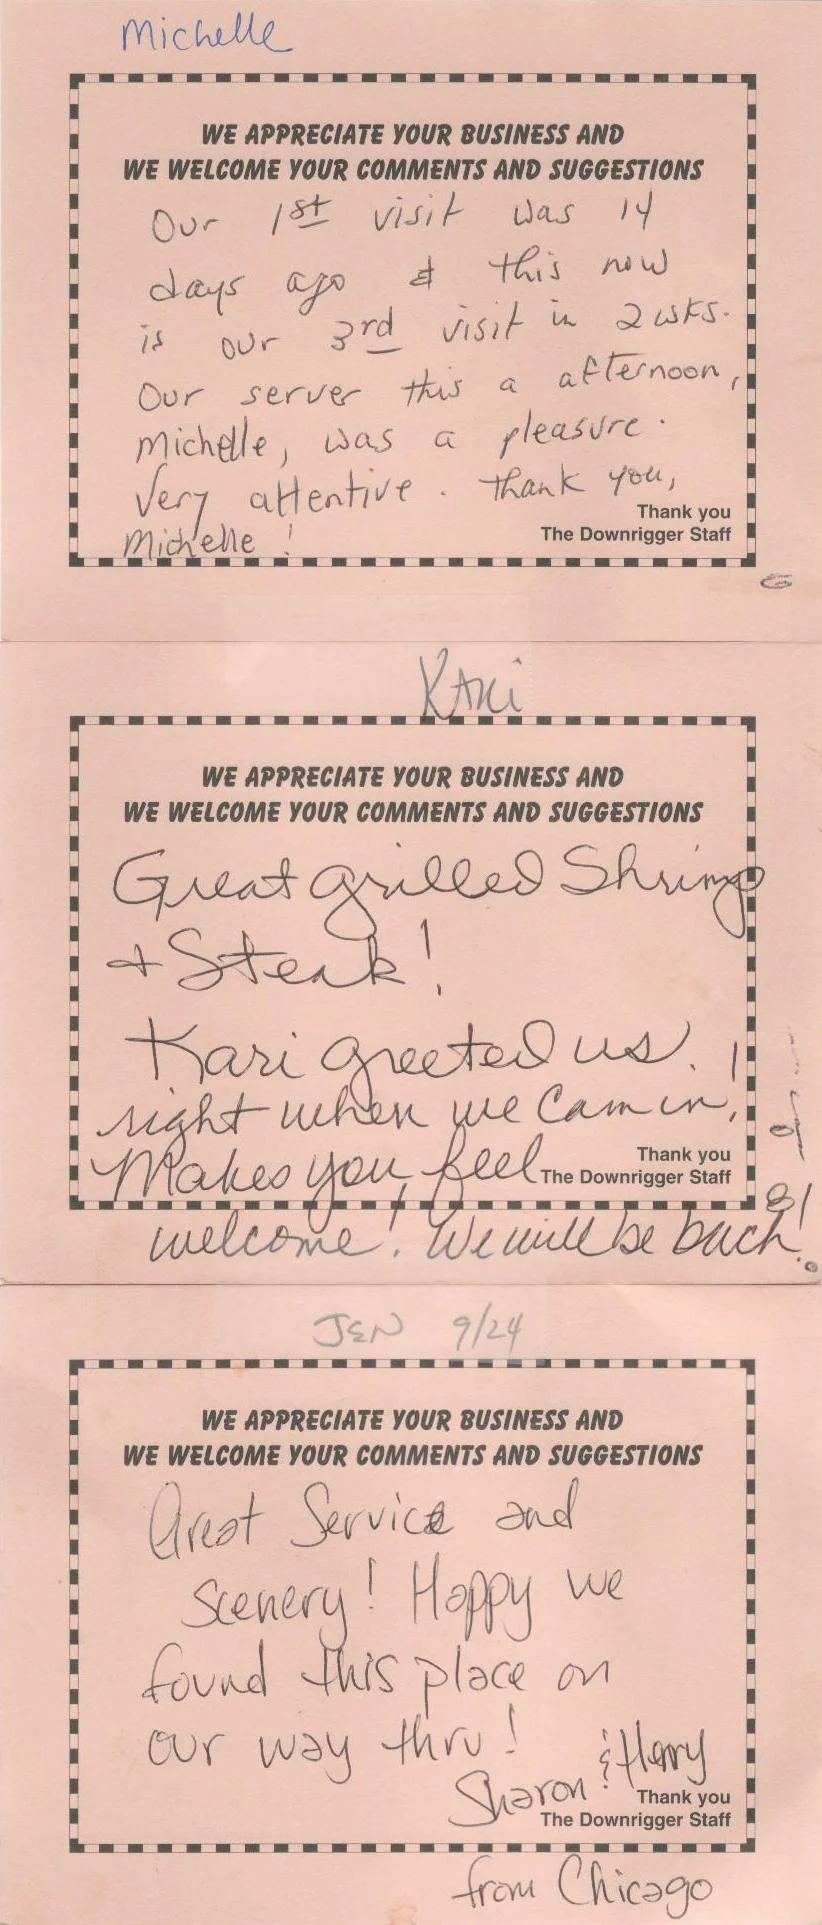 Michelle
WE APPRECIATE YOUR BUSINESS AND
WE WELCOME YOUR COMMENTS AND SUGGESTIONS
Our 1st visit was 14
days ago & this now
is our 3rd visit in 2 wks.
Our server this a afternoon,
Michelle, was a pleasure.
Very attentive. Thank you,
Michelle!
Thank you
The Downrigger Staff
Kari
WE APPRECIATE YOUR BUSINESS AND
WE WELCOME YOUR COMMENTS AND SUGGESTIONS
Great grilled Shrimp
+ Steak!
Kari greeted us
right when we cam in!
Makes you feel
welcome! We will be back!
Thank you
The Downrigger Staff
JEN 9/24
WE APPRECIATE YOUR BUSINESS AND
WE WELCOME YOUR COMMENTS AND SUGGESTIONS
Great Service and
Scenery! Happy we
found this place on
our way thru!
Sharon & Harry
Thank you
The Downrigger Staff
from Chicago